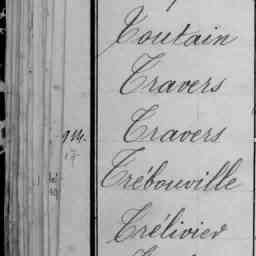 Toutain
Travers
Travers
Trébouville
Trélivier